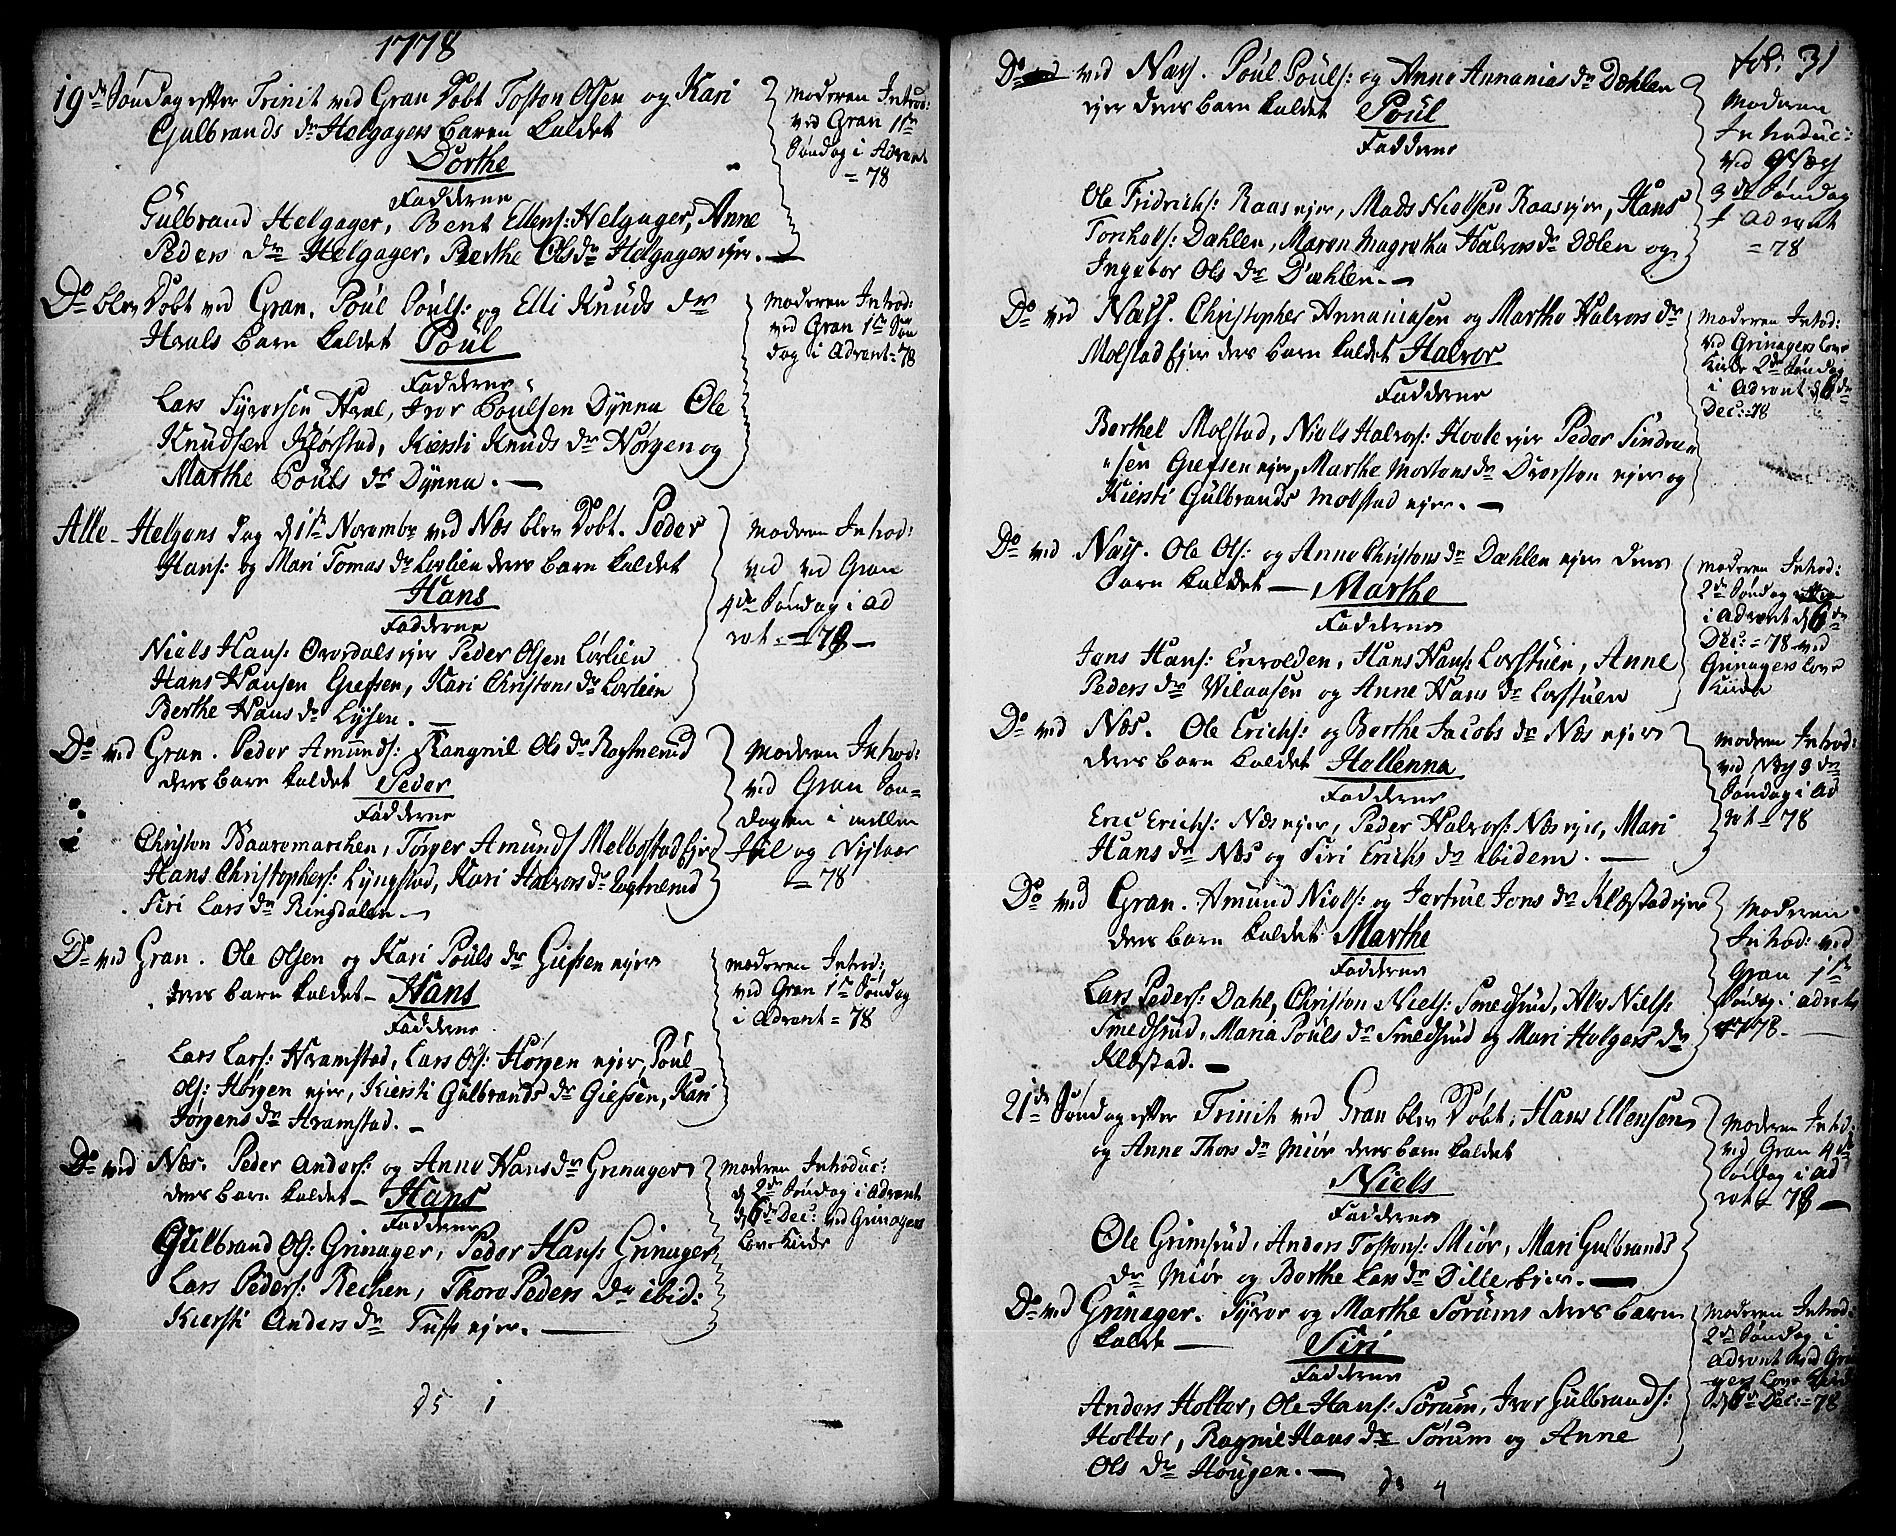 1778
19de Søndag efter Trinit ved Gran Døbt Toston Olsen og Kari
Gulbrands dr Helgagers barn kaldet
Dorthe
Fadderne
Gulbrand Helgager, Bent Ellens: Helgager, Anne
Peders dr Helgager, Berthe Ols dr Helgagers ejer.
Moderen Introd:
ved Gran 1ste
Søndag i Advent
= 78
Do blev Døbt ved Gran. Poul Pouls: og Elli Knuds dr
Hvals barn kaldet Poul
Fadderne
Lars Syversen Hval, Iver Poulsen Dynna Ole
Knudsen Klørstad, Kiersti Knuds dr Nørgen og
Marthe Pouls dr Dynna.
Moderen Introd:
ved Gran 1ste Søn
dag i Advent = 78
Alle-Helgens dag d 1ste Novembr ved Næs blev Døbt. Peder
Hans: og Mari Tomas dr Lovlien deres barn kaldet
Hans
Fadderne
Niels Hans: Overdals ejer Peder Olsen Lovlien
Hans Hansen Grefsen, Kari Christens dr Lovlien
Berthe Hans dr Lysen.
Moderen Introd:
ved ved Gran
4de Søndag i Ad
vet = 78
Do ved Gran. Peder Amunds: Rangnil Ols dr Rognerud
deres barn kaldet Peder
Fadderne
Christen Baaremarchen, Torger Amunds Melbostad Ejer
Hans Christophers: Lyngstad, Kari Halvors dr Rognerud
Siri Lars dr Ringdalen
Moderen Introd:
ved Gran Søn-
dagen i mellem
Jul og Nytaar
= 78
Do ved Gran. Ole Olsen og Kari Pouls dr Giefsen ejer
deres barn kaldet Hans
Fadderne
Lars Lars: Hvamstad, Lars Ols: Hørgen ejer, Poul
Ols: Hørgen ejer, Kiersti Gulbrands dr Giefsen, Kari
Jørgens dr Hvamstad.
Moderen Introd:
ved Gran 1ste Søndag
i Advent = 78
Do ved Næs. Peder Anders: og Anne Hans dr Grinager
deres barn kaldet Hans
Fadderne
Gulbrand Ols: Grinager, Peder Hans: Grinager
Lars Peders: Rechen, Thore Peders dr ibid:
Kiersti Anders dr Tuff ejer.
Moderen Introduc:
d 2de Søndag i Advent
d 6de Dec: ved Grinagers
Love Kirke
fol: 31
Do ved Næss. Poul Pouls: og Anne Annanias dr Dæhlen
ejer deres barn kaldet Poul
Fadderne
Ole Fridrichs: Raas ejer, Mads Nielsen Raas ejer, Hans
Torchels: Dæhlen, Maren Magretha Halvors dr Dælen og
Ingebor Ols dr Dæhlen.
Moderen
Introduc:
ved Næss
3de Søndag
i Advent
= 78
Do ved Næss. Christopher Annaniasen og Marthe Halvors dr
Molstad Ejer deres barn kaldet Halvor
Fadderne
Berthel Molstad, Niels Halvors: Hvale ejer Peder Sindre
sen Grefsen ejer, Marthe Mortens dr Dversten ejer og
Kiersti Gulbrands Molstad ejer.
Moderen Introd:
ved Grinagers Love
Kirke 2de Søndag
i Advent d 6de
Dec: 78
Do ved Næss. Ole Ols: og Anne Christens dr Dæhlen ejer deres
barn kaldet Marthe
Fadderne
Jens Hans: Enevolden, Hans Hans: Lovstuen, Anne
Peders dr Vilaasen og Anne Hans dr Lovstuen
Moderen Introd:
2de Søndag
i Advent d 6de
Dec: = 78 ved
Grinagers Love
Kirke
Do ved Næs. Ole Erichs: og Berthe Jacobs dr Næs ejer
deres barn kaldet Hellenna
Fadderne
Eric Erichs: Næs ejer, Peder Halvors: Næs ejer, Mari
Hans dr Næs og Siri Erichs dr ibidem.
Moderen Introd:
ved Næs 3de
Søndag i Ad
vet = 78
Do ved Gran. Amund Niels: og Jertrue Jens dr Klæstad ejer
deres barn kaldet Marthe
Fadderne
Lars Peders: Dahl, Christen Niels: Smedsrud, Alv Niels:
Smedsrud, Maria Pouls dr Smedsrud og Mari Holgers dr
Kløstad.
Moderen
Introd: ved
Gran 1ste
Søndag i Advent
1778
21de Søndag efter Trinit ved Gran blev Døbt. Hans Ellensen
og Anne Thors dr Miør deres barn kaldet
Niels
Fadderne
Ole Grimsrud, Anders Tostens: Miør, Mari Gulbrands
dr Miør og Berthe Lars dr Dille Ejer.
Moderen Introd:
ved Gran 4de
Søndag i Ad
vet = 78
Do ved Grinager. Syver og Marthe Sørums deres barn
kaldt Siri
Fadderne
Anders Holter, Ole Hans: Sørum, Iver Gulbrands:
Holter, Ragnil Hans dr Sørum og Anne
Ols dr Hougen.
Moderen Introd:
2de Søndag i
Advent ved Grina
gers Love Kirke
d 6de Dec: = 78